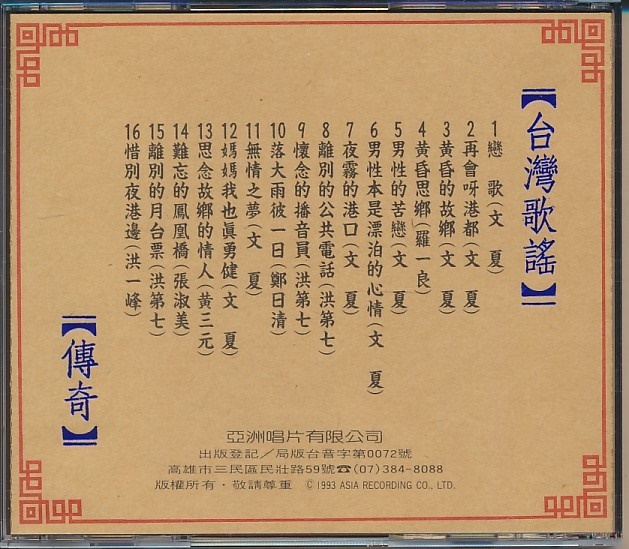 【台灣歌謠】
1 戀 歌(文 夏)
2 再會呀港都(文 夏)
3 黃昏的故鄉(文 夏)
4 黃昏思鄉(羅一良)
5 男性的苦戀(文 夏)
6 男性本是漂泊的心情(文 夏)
7 夜霧的港口(文 夏)
8 離別的公共電話(洪第七)
9 懷念的播音員(洪第七)
10 落大雨彼一日(鄭日清)
11 無情之夢(文 夏)
12 媽媽我也真勇健(文 夏)
13 思念故鄉的情人(黃三元)
14 難忘的鳳凰橋(張淑美)
15 離別的月台票(洪第七)
16 惜別夜港邊(洪一峰)
【傳奇】
亞洲唱片有限公司
出版登記／局版台音字第0072號
高雄市三民區民壯路59號☎(07)384-8088
版權所有・敬請尊重 ©1993 ASIA RECORDING CO., LTD.